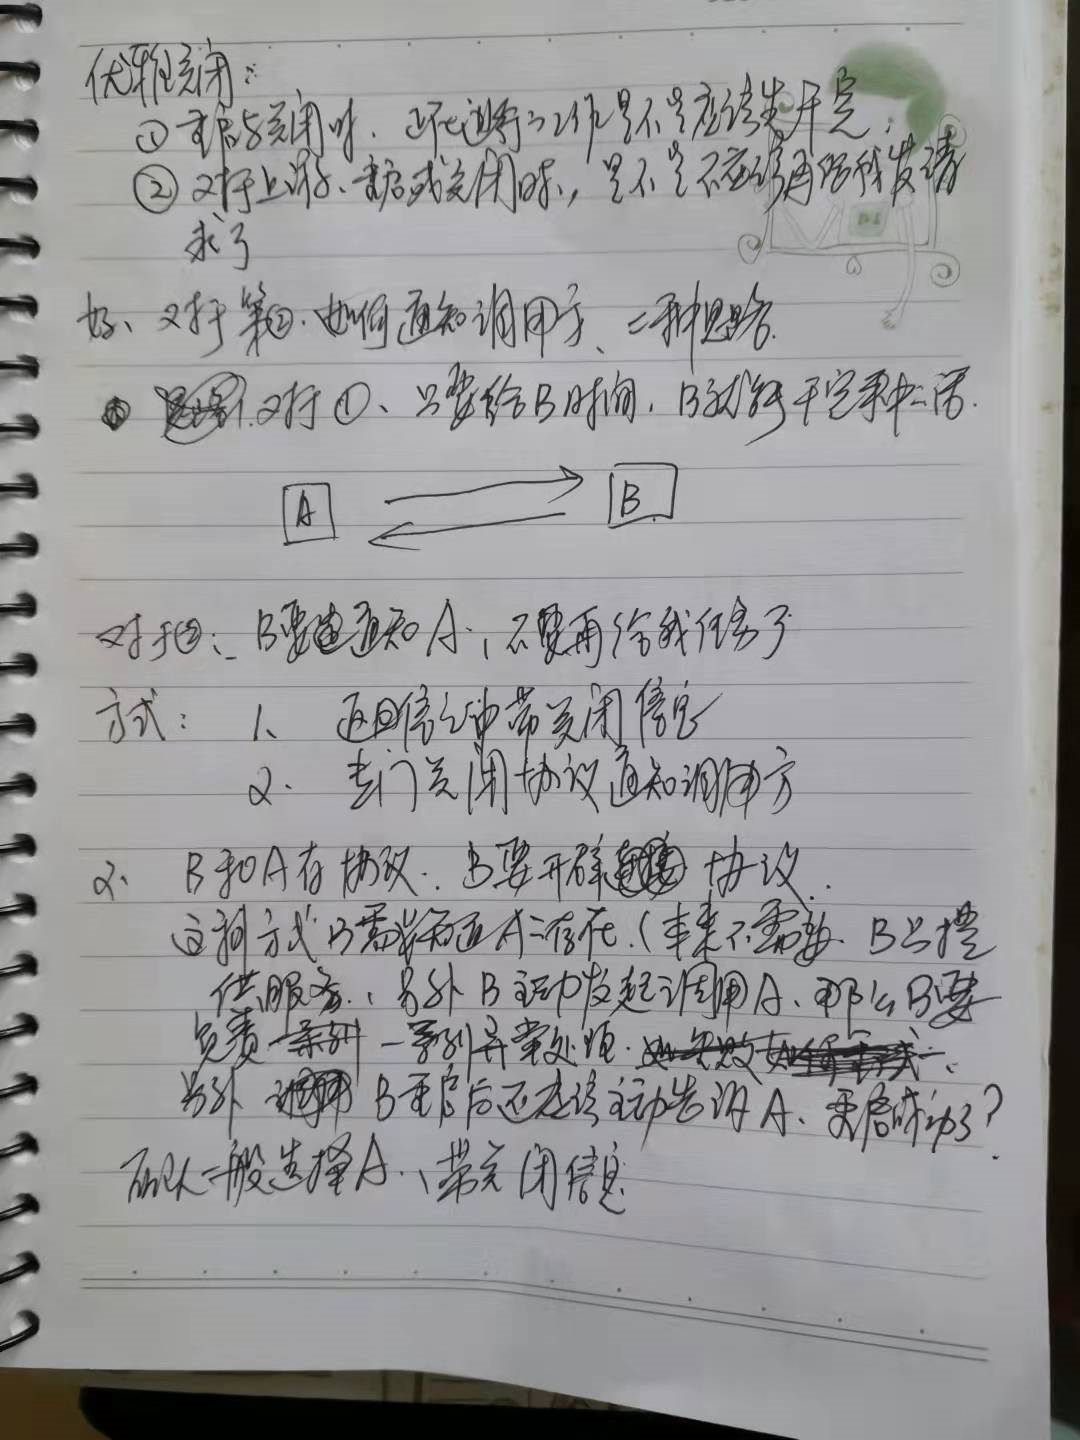 优雅关闭：
① 重启与关闭时、正在进行的工作是不是应该先干完；
② 对于上游、重启或关闭时，是不是不应该再给我发请
求了
好、对于第②、如何通知调用方、二种思路.
对于①、只要给B时间，B就能干完手中的活.
A B
对于②、B要通知A、不要再给我任务了
方式： 1、 返回信息中带关闭信息
2. 专门关闭协议通知调用方
2、 B和A有协议. B要开辟 协议.
这种方式B需要知道A的存在.（本来不需要. B只提
供服务、另外B主动发起调用A、那么B要
负责 一系列异常处理.
另外 B重启后还应该主动告诉A、重启成功了？
所以一般选择A、带关闭信息